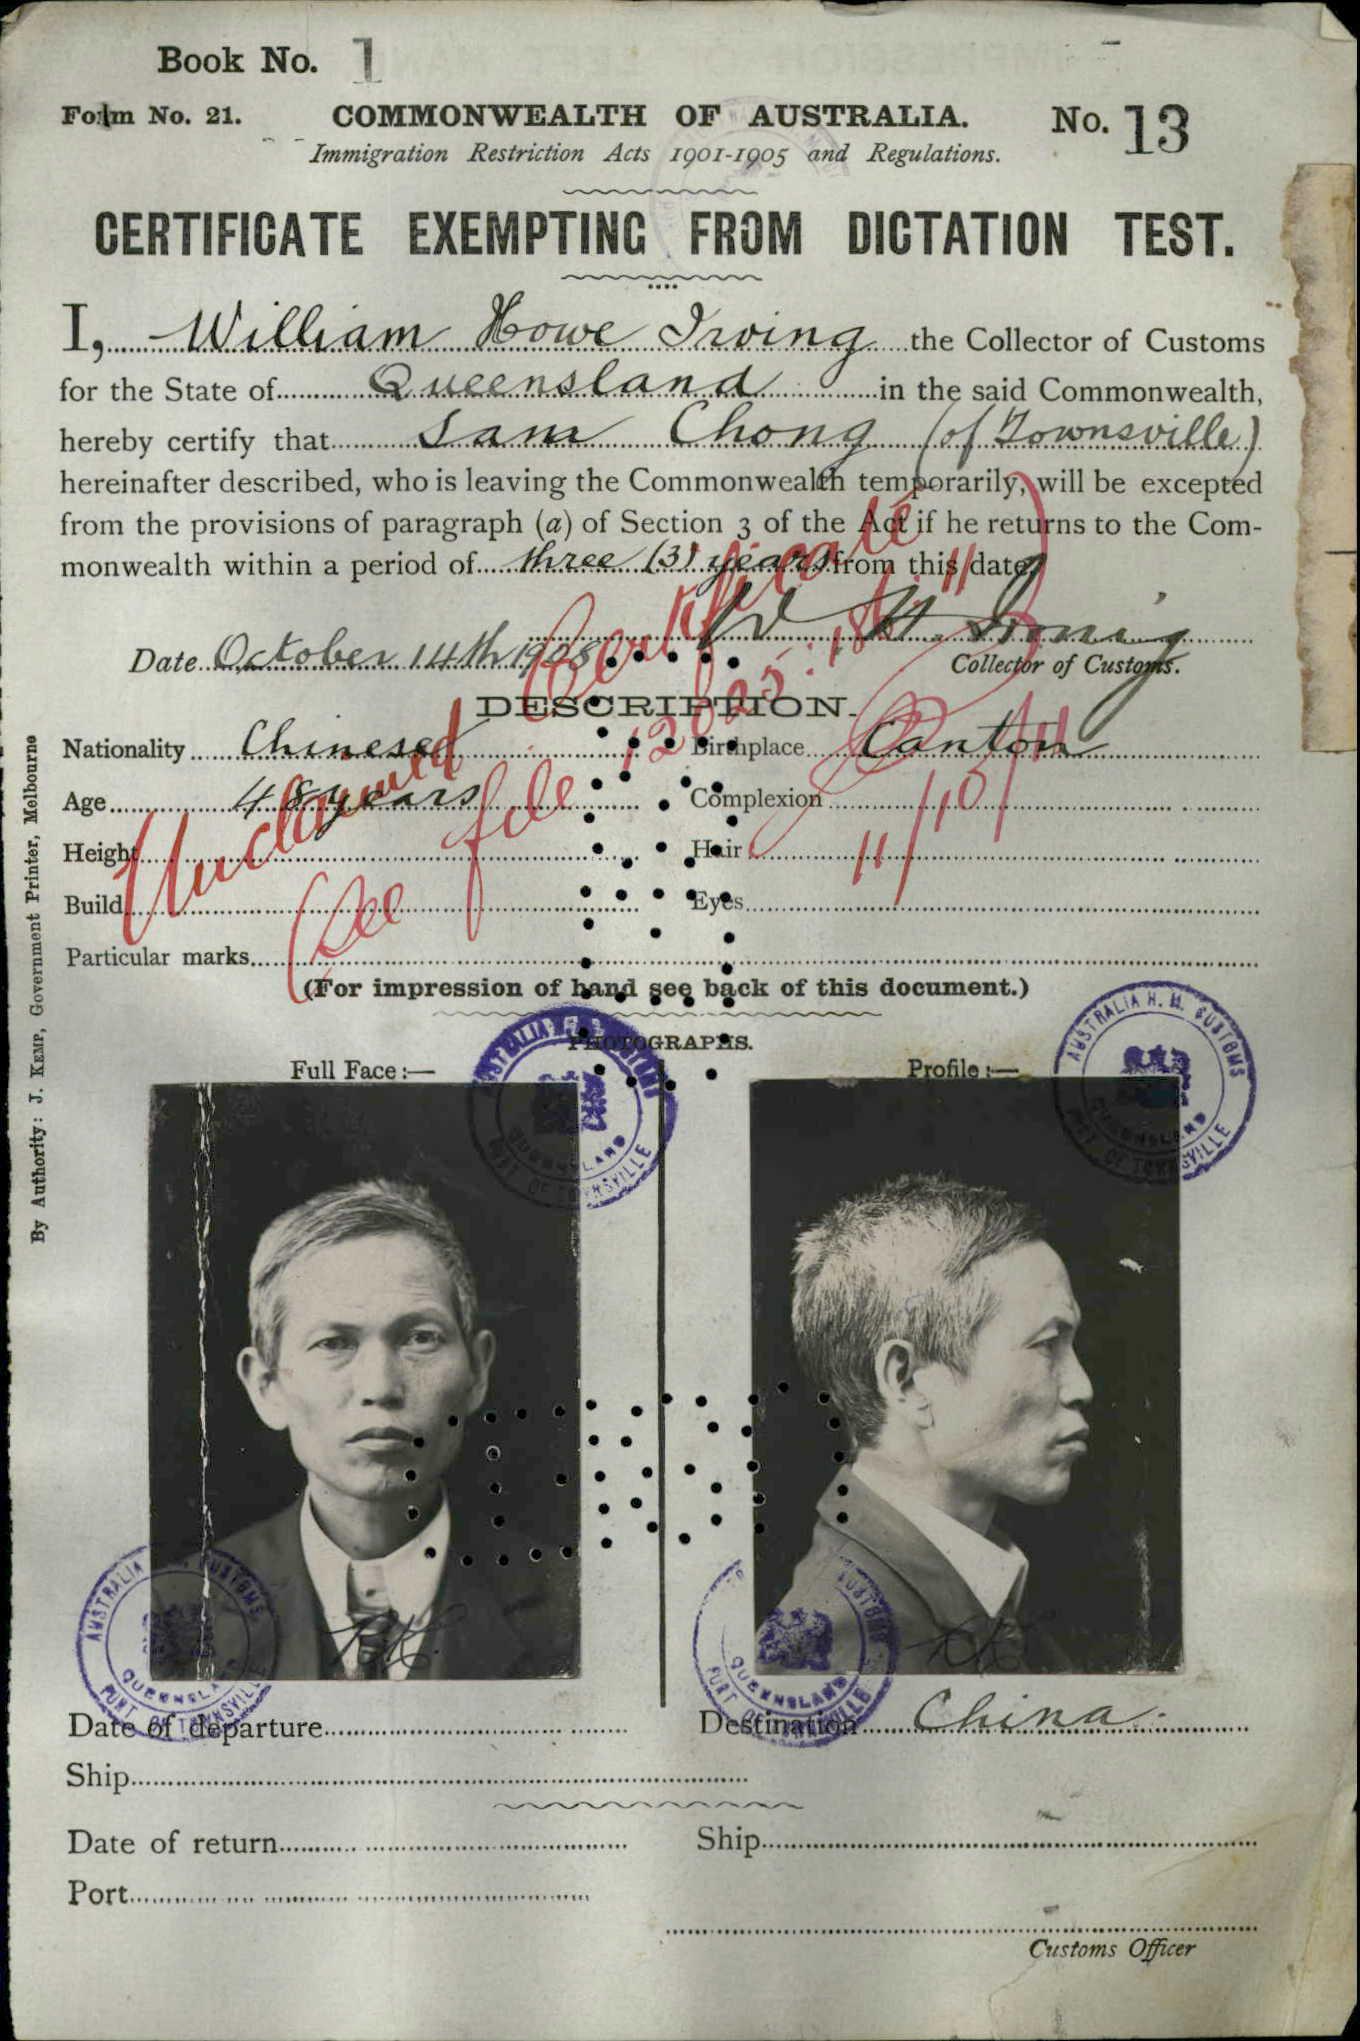 Book No. 1
Form No. 21.
COMMONWEALTH OF AUSTRALIA.
No. 13
Immigration Restriction Acts 1901-1905 and Regulations.
CERTIFICATE EXEMPTING FROM DICTATION TEST.
I, William Howe Irving the Collector of Customs
for the State of Queensland in the said Commonwealth,
hereby certify that Sam Chong (of Townsville)
hereinafter described, who is leaving the Commonwealth temporarily, will be excepted
from the provisions of paragraph (a) of Section 3 of the Act if he returns to the Com-
monwealth within a period of three (3) years from this date.
W H Irving
Date October 14th 1908
Collector of Customs.
DESCRIPTION.
Nationality Chinese
Birthplace Canton
Age 48 years
Complexion
Height
Hair
Build
Eyes
Particular marks
Unclaimed Certificate
(See file 12025
11/10/11
(For impression of hand see back of this document.)
PHOTOGRAPHS.
Full Face:—
Profile:—
AUSTRALIA H. M. CUSTOMS
QUEENSLAND
PORT OF TOWNSVILLE
AUSTRALIA H. M. CUSTOMS
QUEENSLAND
PORT OF TOWNSVILLE
AUSTRALIA CUSTOMS
QUEENSLAND
PORT OF TOWNSVILLE
CUSTOMS
QUEENSLAND
PORT OF TOWNSVILLE
Date of departure
Destination China.
Ship
Date of return
Ship
Port
Customs Officer
By Authority: J. KEMP, Government Printer, Melbourne